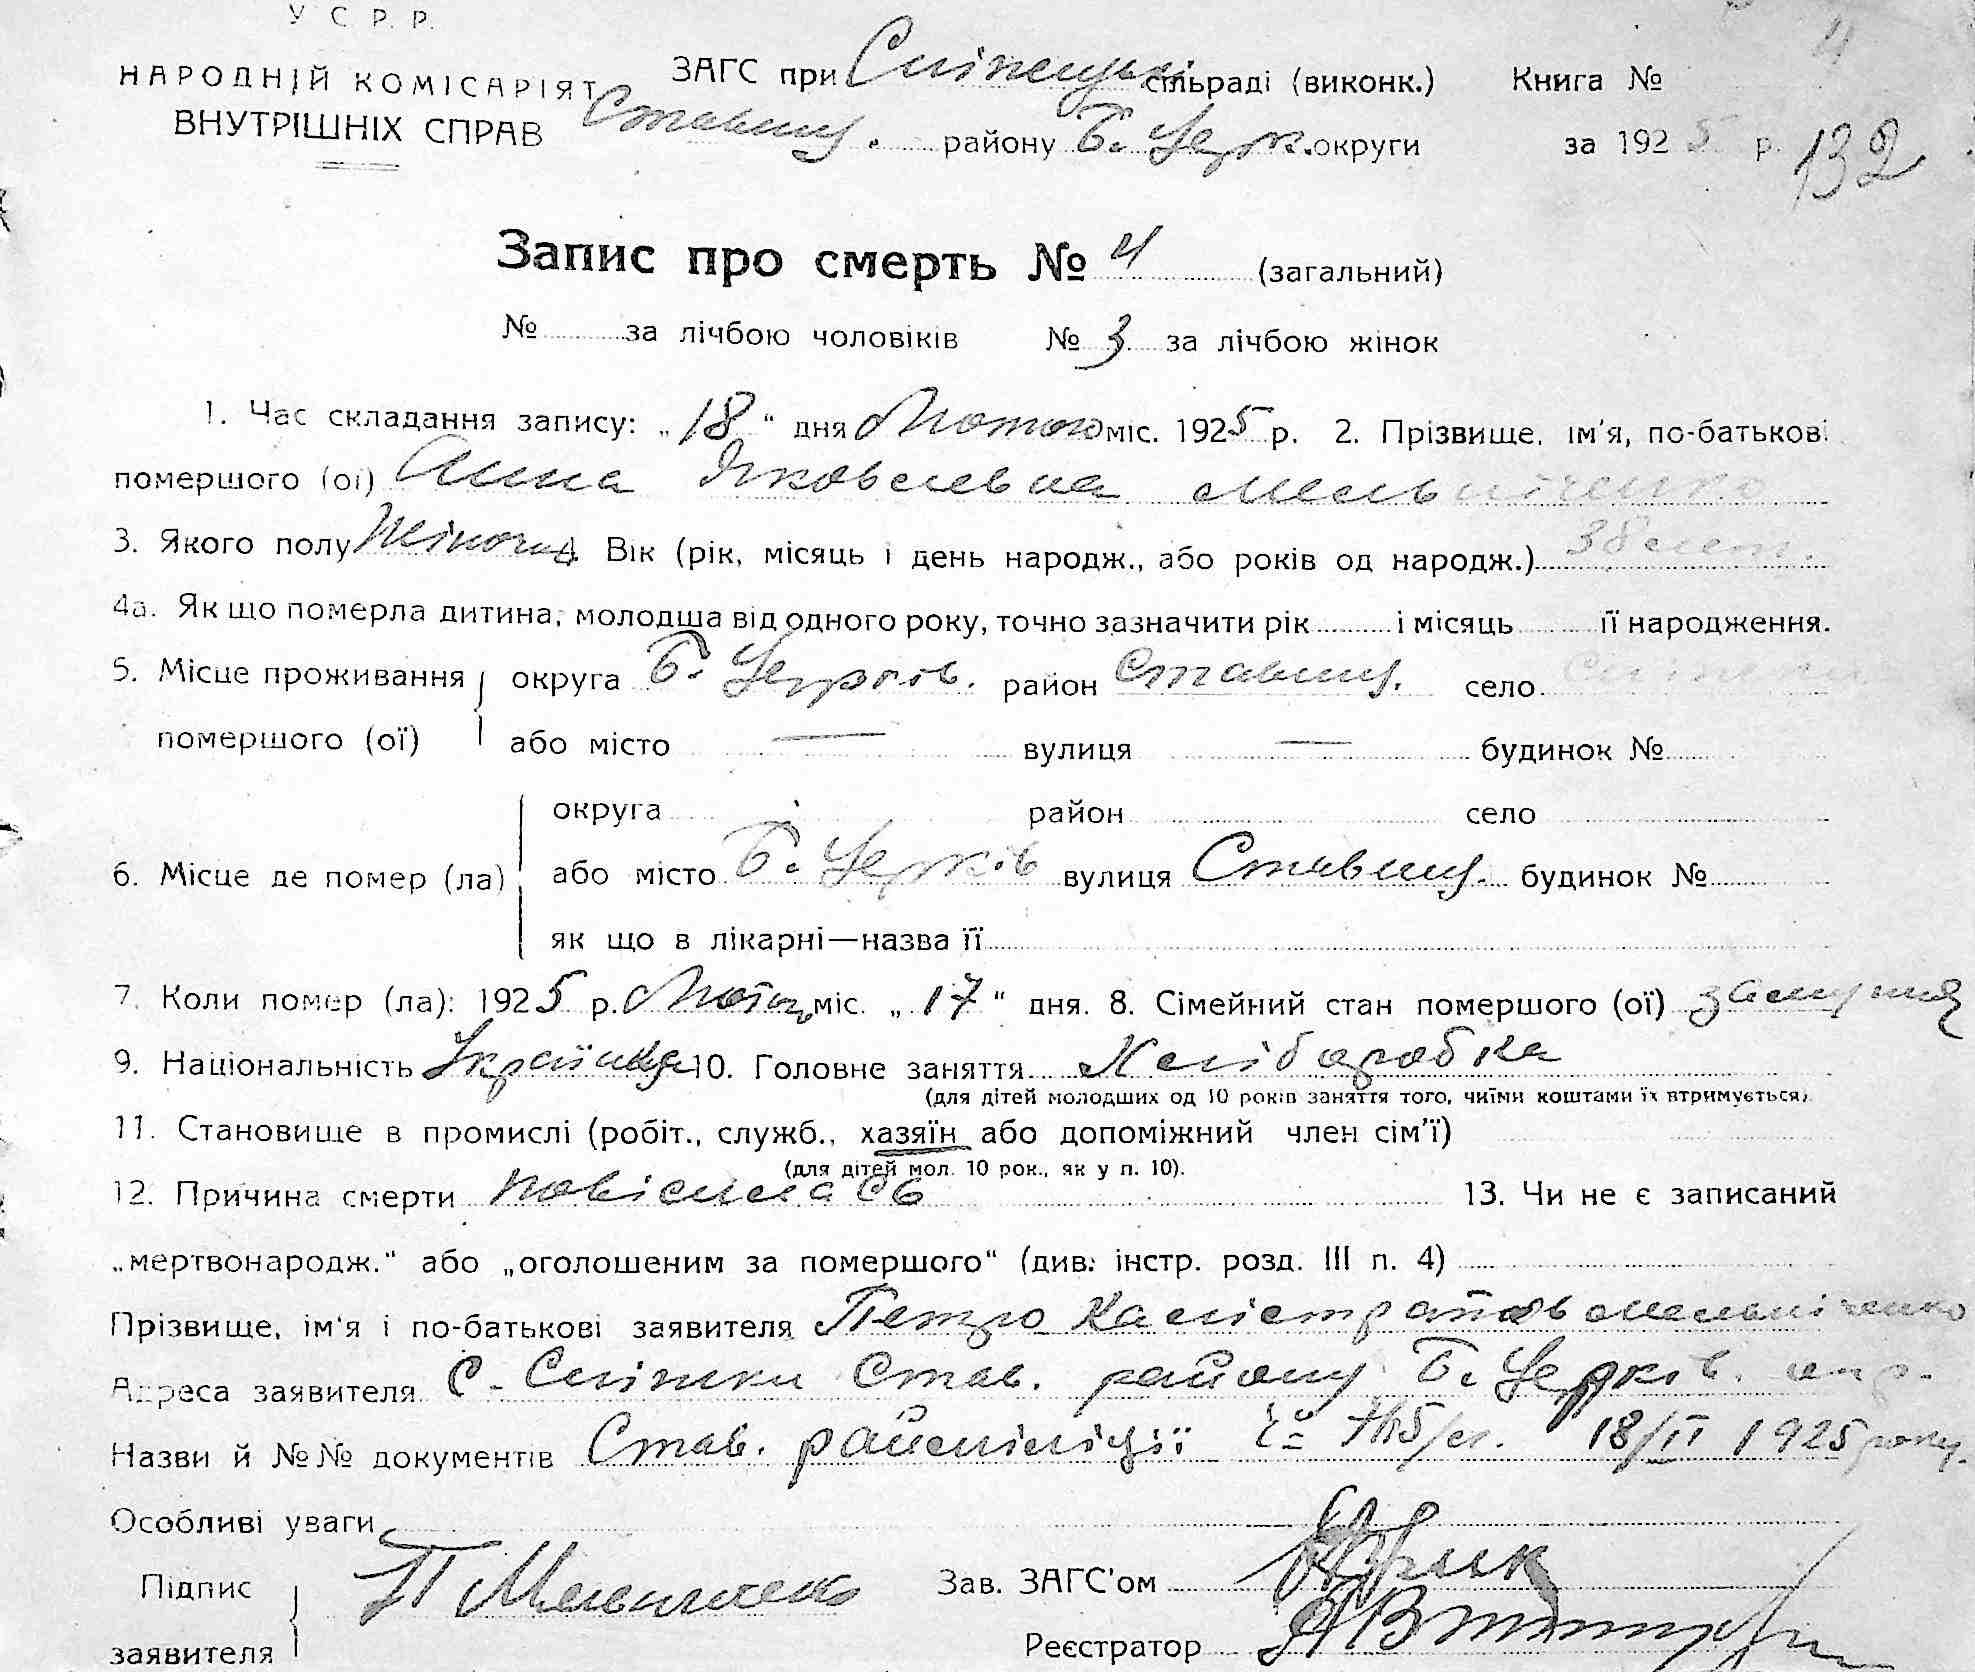 У С Р. Р.
НАРОДНІЙ КОМІСАРІЯТ ЗАГС при сільраді (виконк.) Книга №
4
ВНУТРІШНІХ СПРАВ Ставищ. району Б. Церк. округи за 1925 р. 132
Запис про смерть № 4 (загальний)
№ за лічбою чоловіків № 3 за лічбою жінок
1. Час складання запису: „18“ дня Лютого міс. 1925 р. 2. Прізвище, ім'я, по-батькові
помершого (ої) Анна Яковлевна Мельніченко
3. Якого полу Жіночий Вік (рік, місяць і день народж., або років од народж.) лет.
4а. Як що померла дитина, молодша від одного року, точно зазначити рік і місяць її народження.
5. Місце проживання округа Б. Церків. район Ставищ. село
помершого (ої) або місто — вулиця — будинок №
округа район село
6. Місце де помер (ла) або місто Б. Церків вулиця Ставищ. будинок №
як що в лікарні—назва її
7. Коли помер (ла): 1925 р. міс. „17“ дня. 8. Сімейний стан помершого (ої) замужня
9. Національність Українка 10. Головне заняття Хліборобка
(для дітей молодших од 10 років заняття того, чиїми коштами їх втримується)
11. Становище в промислі (робіт., служб., хазяїн або допоміжний член сім'ї)
(для дітей мол. 10 рок., як у п. 10).
12. Причина смерти повісилась 13. Чи не є записаний
„мертвонародж.“ або „оголошеним за помершого“ (див. інстр. розд. III п. 4)
Прізвище, ім'я і по-батькові заявителя Петро Калістратов Мельніченко
Адреса заявителя С. Став. району Б. Церків. окр.
Назви й №№ документів Став. райміліції 18/II 1925 року.
Особливі уваги
Підпис П Мельниченко Зав. ЗАГС'ом
заявителя Реєстратор